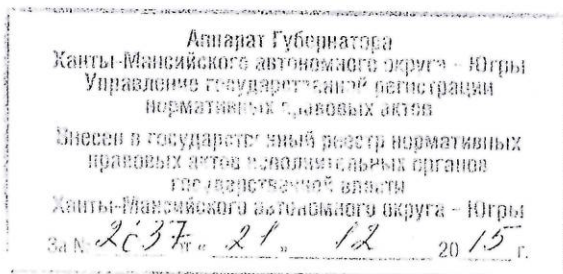 Аппарат Губернатора
Ханты-Мансийского автономного округа - Югры
Управление государственной регистрации
нормативных правовых актов
Внесен в государственный реестр нормативных
правовых актов исполнительных органов
государственной власти
Ханты-Мансийского автономного округа - Югры
За № от « 21 » 12 20 15 г.